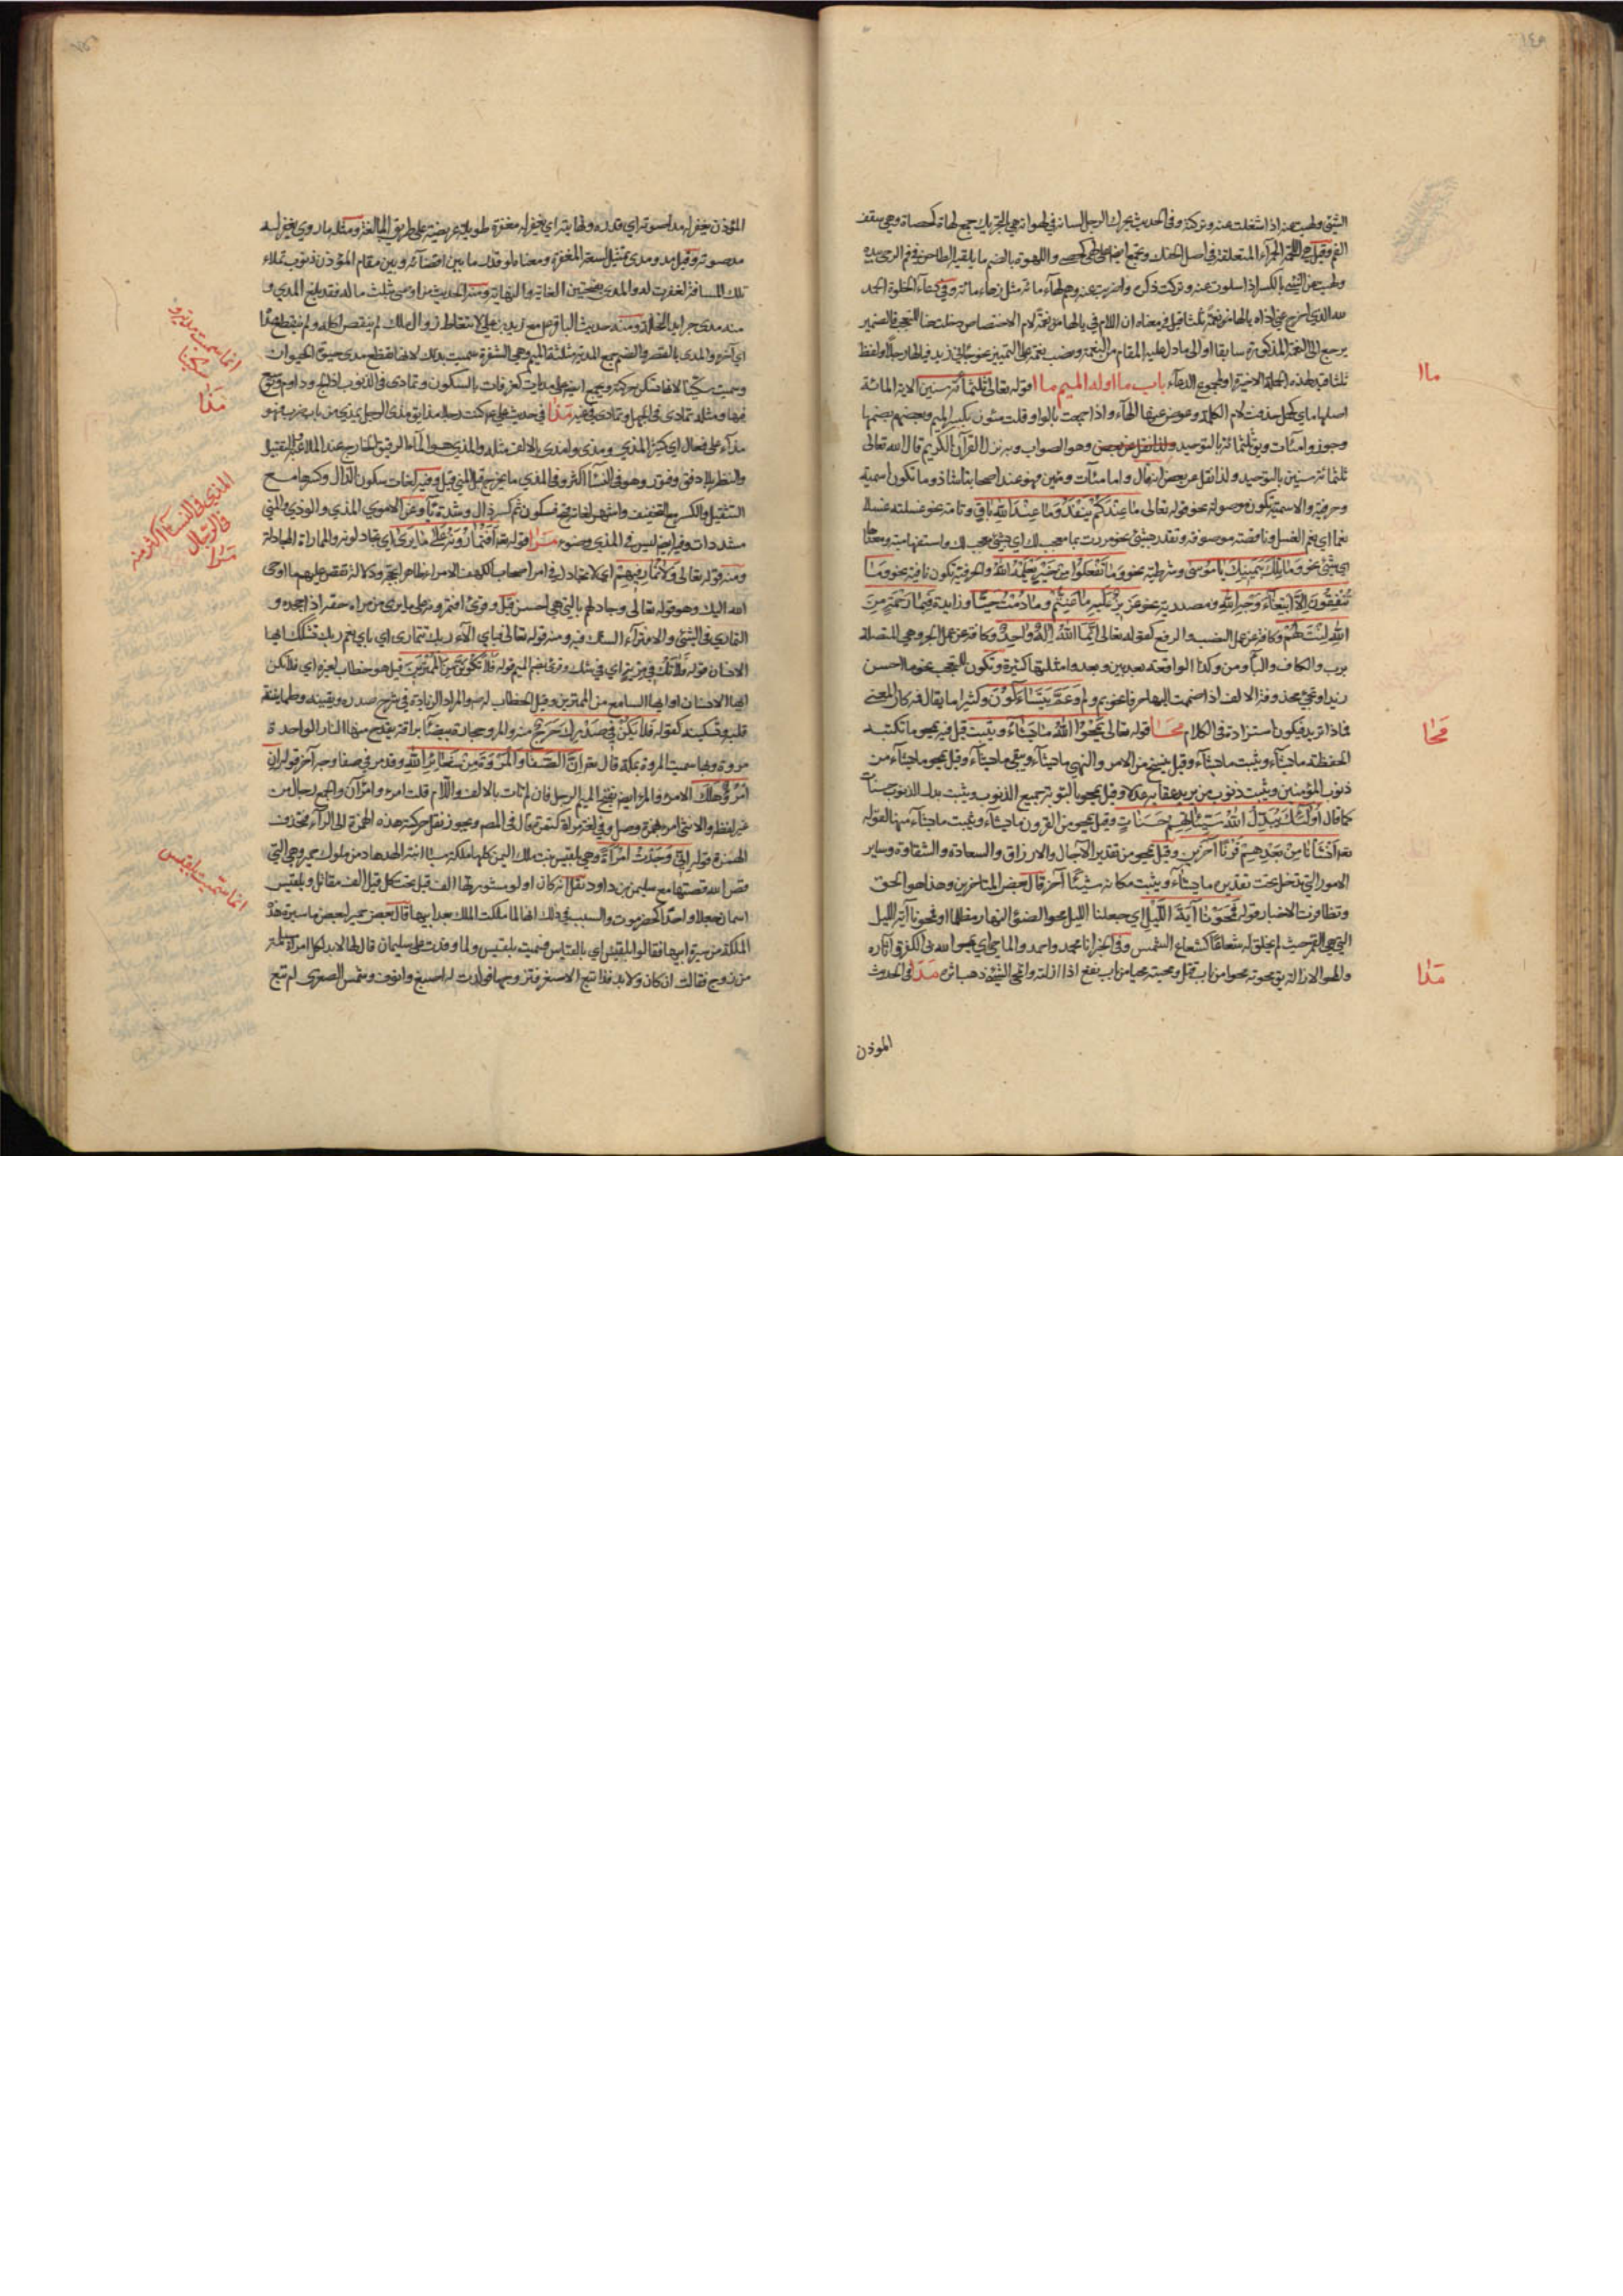 الشئ ولهيت عنه اذا اشتغلت عنه وتركته وفى الحديث يحرك الرجل لسانه فى لهواته هى بالتحريك جمع لهاة كحصاة وهى سقف
الفم وقيل هى اللحمة الحمراء المتعلقة فى اصل الحنك وتجمع ايضا على لهى كحصى واللهوة بالضم ما يلقيه الطاحن فى فم الرحى بيده
ولهيت عن الشئ بالكسر اذا سلوت عنه وتركت ذكره واضربت عنه وهم لهاء مائة مثل زهاء مائة وفى دعاء الخلوة الحمد
لله الذى اخرج عنى اذاه يا لها من نعمة ثلثا قيل فى معناه ان اللام فى يا لها من نعمة لام الاختصاص دخلت هنا للتعجب والضمير
يرجع الى النعمة المذكورة سابقا او الى ما دل عليه المقام من النعمة ونصب نعمة على التمييز نحو جاءنى زيد فيا له رجلا ولفظ
ثلثا قيد لهذه الجملة الاخيرة او لمجموع الدعاء باب ما اوله الميم ماا قوله تعالى ثلثمائة سنين الاية المائة
اصلها مأى كحمل حذفت لام الكلمة وعوض عنها الهاء واذا جمعت بالواو قلت مئون بكسر الميم وبعضهم يضمها
وجوزوا مئات وبق ثلثمائة بالتوحيد وهو الصواب وبه نزل القرآن الكريم قال الله تعالى
ثلثمائة سنين بالتوحيد ولذا نقل عن بعض انه قال واما مئات ومئين فهو عند اصحابنا شاذ وما تكون اسمية
وحرفية والاسمية تكون موصولة نحو قوله تعالى ما عندكم ينفد وما عند الله باق وتامة نحو غسلته غسلا
نعما اى نعم الغسل وناقصة موصوفة وتقدر بشئ نحو مررت بما معجب لك اى بشئ معجب لك واستفهامية ومعناها
اى شئ نحو وما تلك بيمينك يا موسى وشرطية نحو وما تفعلوا من خير يعلمه الله والحرفية تكون نافية نحو وما
تنفقون الا ابتغاء وجه الله ومصدرية نحو عزيز عليه ما عنتم وما دمت حيا وزايدة فبما رحمة من
الله لنت لهم وكافة عن عمل النصب والرفع كقوله تعالى انما الله اله واحد وكافة عن عمل الجر وهى المتصلة
برب والكاف والباء ومن وكذا الواقعة بعد بين وبعد وامثلتها كثيرة وتكون للتعجب نحو ما احسن
زيدا وتجئ محذوفة الالف اذا ضممت اليها حرفا نحو بم ولم وعم يتساءلون وكثيرا ما يقال فمه كان المعنى
فماذا تريد فيكون استزادة فى الكلام محا قوله تعالى يمحوا الله ما يشاء ويثبت قيل فيه يمحو ما تكتبه
الحفظة ما يشاء ويثبت ما يشاء وقيل ينسخ من الامر والنهى ما يشاء ويبقى ما يشاء وقيل يمحو ما يشاء من
ذنوب المؤمنين ويثبت ذنوب من يريد عقابه عدلا وقيل يمحو بالتوبة جميع الذنوب ويثبت بدل الذنوب حسنات
كما قال اولئك يبدل الله سيئاتهم حسنات وقيل يمحو من القرون ما يشاء ويثبت ما يشاء منها لقوله
تعه انشأنا من بعدهم قرنا آخرين وقيل يمحو من تقدير الآجال والارزاق والسعادة والشقاوة وساير
الامور التى تدخل تحت تقديره ما يشاء ويثبت مكانه شيئا آخر قال بعض المتاخرين وهذا هو الحق
وتظافرت الاخبار قوله فمحونا آية الليل اى جعلنا الليل ممحو الضوء النهار مظلما او فمحونا آية الليل
التى هى القمر حيث لم يخلق له شعاعا كشعاع الشمس وفى الخبر انا محمد واحمد والماحى اى يمحو الله بى الكفر وآثاره
والمحو الازالة يق محوته محوا من باب قتل ومحيته محيا من باب نفع اذا ازلته وانمحى الشئ ذهب اثره مدا فى الحديث
الموذن
ماا
محا
مدا
المؤذن يغفر له مد صوته اى قدره ونهايته اى يغفر له مغفرة طويلة عريضة على طريق المبالغة ومثله ما روى يغفر له
مد صوته وقيل مد ومدى تمثيل لسعة المغفرة ومعناه لو قدر ما بين اقصائه وبين مقام المؤذن ذنوب تملاء
تلك المسافة لغفرت له والمدى بفتحتين الغاية والنهاية ومنه الحديث من اوصى بثلث ماله فقد بلغ المدى و
اى آخره والمدى بالقصر والضم جمع المدية مثلثة الميم وهى الشفرة سميت بذلك لانها تقطع مدى حيوة الحيوان
وسميت سكينا لانها تسكن حركته ويجمع ايضا على مديات كغرفات بالسكون وتمادى فى الذنوب اذا لج وداوم وتوسع
فيها ومثله تمادى فى الجهل وتمادى فى غيه مذا فى حديث على ع كنت رجلا مذاء يق مذى الرجل يمذى من باب ضرب فهو
مذاء على فعال اى كثير المذى ومذى وامذى بالالف مثله والمذى هو الماء الرقيق الخارج عند الملاعبة والتقبيل
والنظر بلا دفق وفتور وهو فى النساء اكثر وفى المذى ما يخرج قبل المنى قيل وفيه لغات سكون الذال وكسرها مع
التثقيل والكسر مع التخفيف واشهر لغاته فتح فسكون ثم كسر ذال وشدة ياء وعن الاموى المذى والوذى والمنى
مشددات وفيه ايضا ليس فى المذى وضوء مرا قوله تعه افتمارونه على ما يرى اى تجادلونه والمماراة المجادلة
ومنه قوله تعالى ولا تمار فيهم اى لا تجادل فى امر اصحاب الكهف الا مراء ظاهرا بحجة ودلالة تقص عليهم ما اوحى
الله اليك وهو قوله تعالى وجادلهم بالتى هى احسن قيل وقرئ افتمرونه على ما يرى من مراه حقه اذا جحده و
التمارى فى الشئ والامتراء الشك فيه ومنه قوله تعالى فباى آلاء ربك تتمارى اى باى نعم ربك تشكك ايها
الانسان قوله فلا تك فى مرية اى فى شك وقرئ بضم الميم قوله فلا تكونن من الممترين قيل هو خطاب لغيره اى فلا تكن
ايها الانسان او ايها السامع من الممترين وقيل الخطاب له ص والمراد الزيادة فى شرح صدره ويقينه وطمانينة
قلبه وتسكينه كقوله فلا يكن فى صدرك حرج منه والمرو حجارة بيضاء براقة يقدح منها النار الواحدة
مروة وبها سميت المروة بمكة قال تعه ان الصفا والمروة من شعائر الله وقد مر فى صفا وجه آخر قوله ان
امرؤ هلك الامرء والمرء ايضا بفتح الميم الرجل فان لم تات بالالف واللام قلت امرء وامرآن والجمع رجال من
غير لفظه والانثى امرءة بهمزة وصل وفى لغة مرأة كتمرة قال فى المصـ ويجوز نقل حركة هذه الهمزة الى الراء فتحذف
الهمزة قوله انى وجدت امراة وهى بلقيس بنت ملك اليمن كلها ملكة سبا من ملوك حمير وهى التى
قص الله قصتها مع سليمن بن داود نقل انه كان اولو مشورتها الف قيل تحت كل قيل الف مقاتل وبلقيس
اسمان جعلا واحدا كحضرموت والسبب فى ذلك انها لما ملكت الملك بعد ابيها قال بعض حمير لبعض ما سيرة هذه
الملكة من سيرة ابيها فقالوا بلقيس اى بالقياس فسميت بلقيس ولما وفدت على سليمان قال لها لابد لكل امراة مسلمة
من زوج فقالت ان كان ولابد فذا تبع الاصغر فتزوجها فولدت له اصبغ وانوف وشمس الصغرى ام تبع
انما سميت مدية و سكينا
مذا
المذى فى النساء اكثر منه
فى الرجال
مرا
انما سميت بلقيس